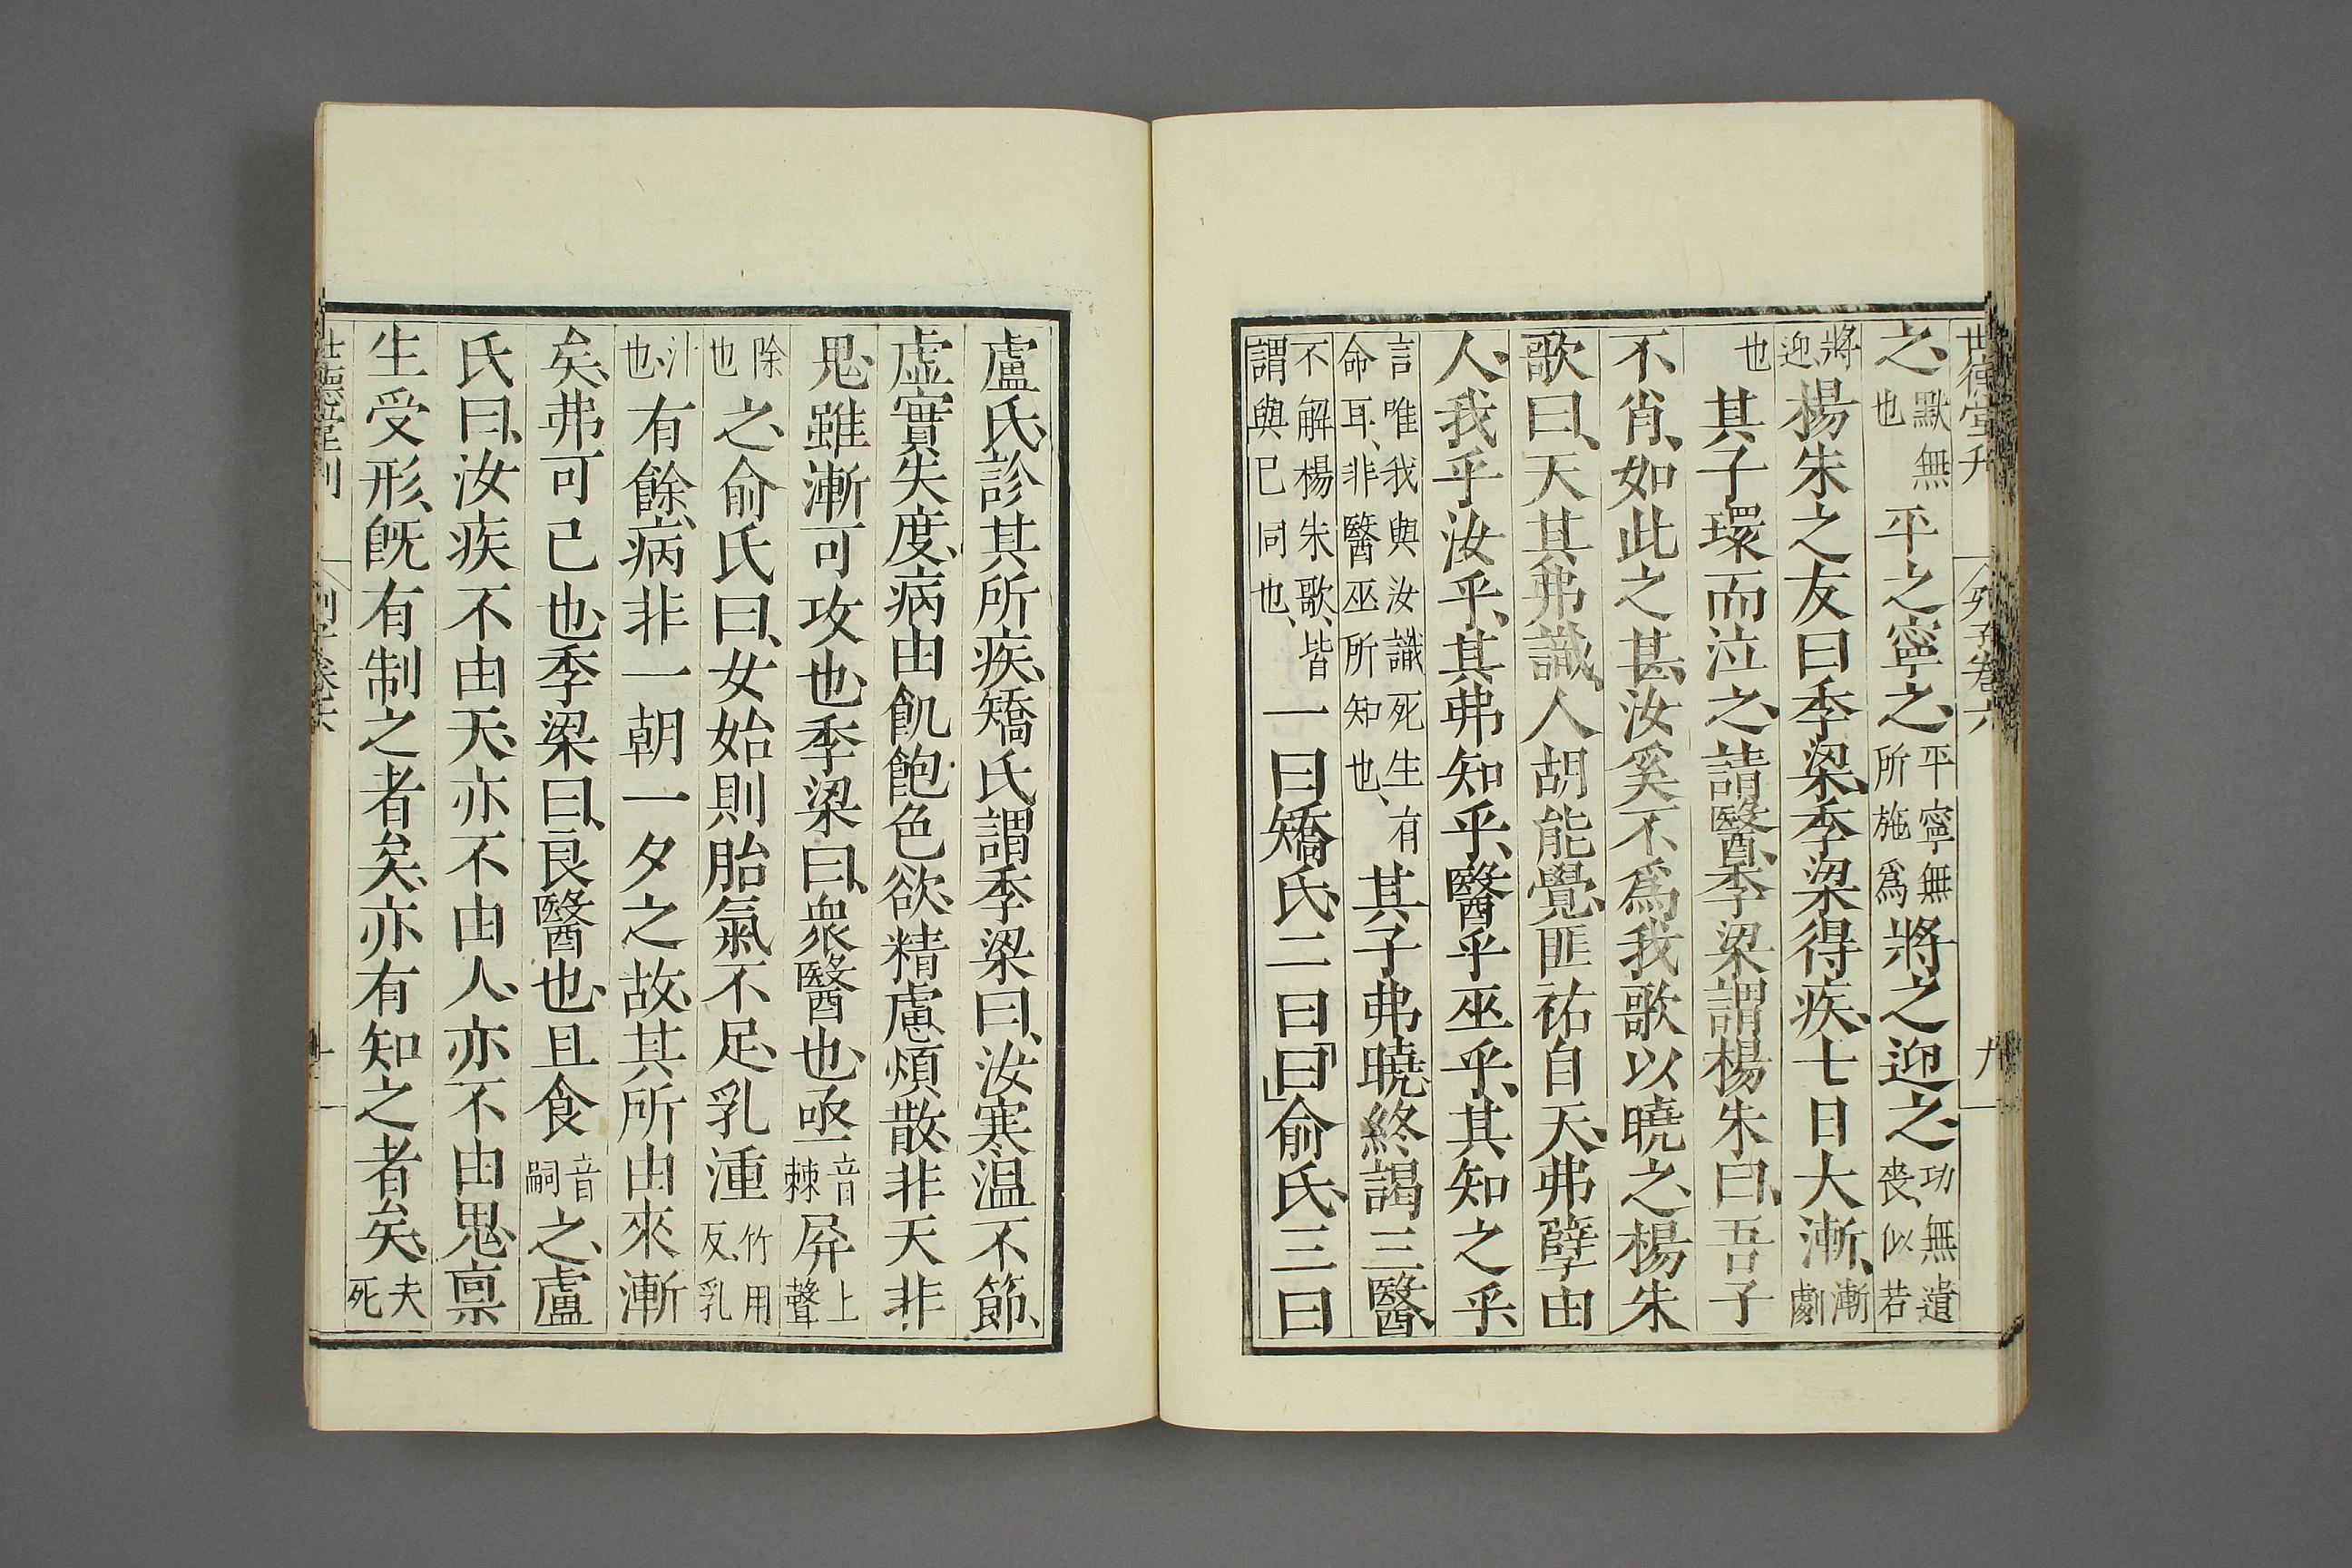 世德堂刊 列子卷六 九
之、默無也平之寧之、平寧無所施爲將之迎之、功無遺喪、似若
將迎、楊朱之友曰季梁、季梁得疾、七日大漸、漸劇
也其子環而泣之、請醫、季梁謂楊朱曰、吾子
不肖、如此之甚、汝奚不爲我歌以曉之、楊朱
歌曰、天其弗識、人胡能覺、匪祐自天、弗孽由
人、我乎汝乎、其弗知乎、醫乎巫乎、其知之乎、
言唯我與汝識死生有命耳、非醫巫所知也、其子弗曉終謁三醫、
不解楊朱歌、皆謂與已同也、一曰矯氏、二曰「曰」俞氏、三曰
盧氏、診其所疾、矯氏謂季梁曰、汝寒温不節、
虚實失度、病由飢飽色欲、精慮煩散、非天非
鬼、雖漸可攻也、季梁曰、衆醫也、亟音棘屏上聲
除也之、俞氏曰、女始則胎氣不足、乳湩竹用反、乳
汁也、有餘、病非一朝一夕之故、其所由來漸
矣、弗可已也、季梁曰、良醫也、且食音嗣之、盧
氏曰、汝疾不由天、亦不由人、亦不由鬼、禀
生受形、旣有制之者矣、亦有知之者矣、夫死